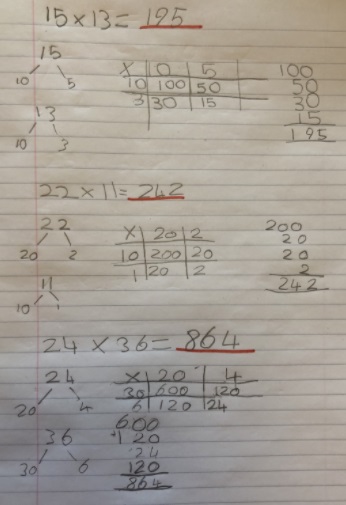 15 x 13 = 195
15
10 5
13
10 3
X 0 5
10 100 50
3 30 15
100
50
30
15
195
22 x 11 = 242
22
20 2
11
10 1
X 20 2
10 200 20
1 20 2
200
20
20
2
242
24 x 36 = 864
24
20 4
36
30 6
X 20 4
30 600 120
6 120 24
600
+120
24
120
864